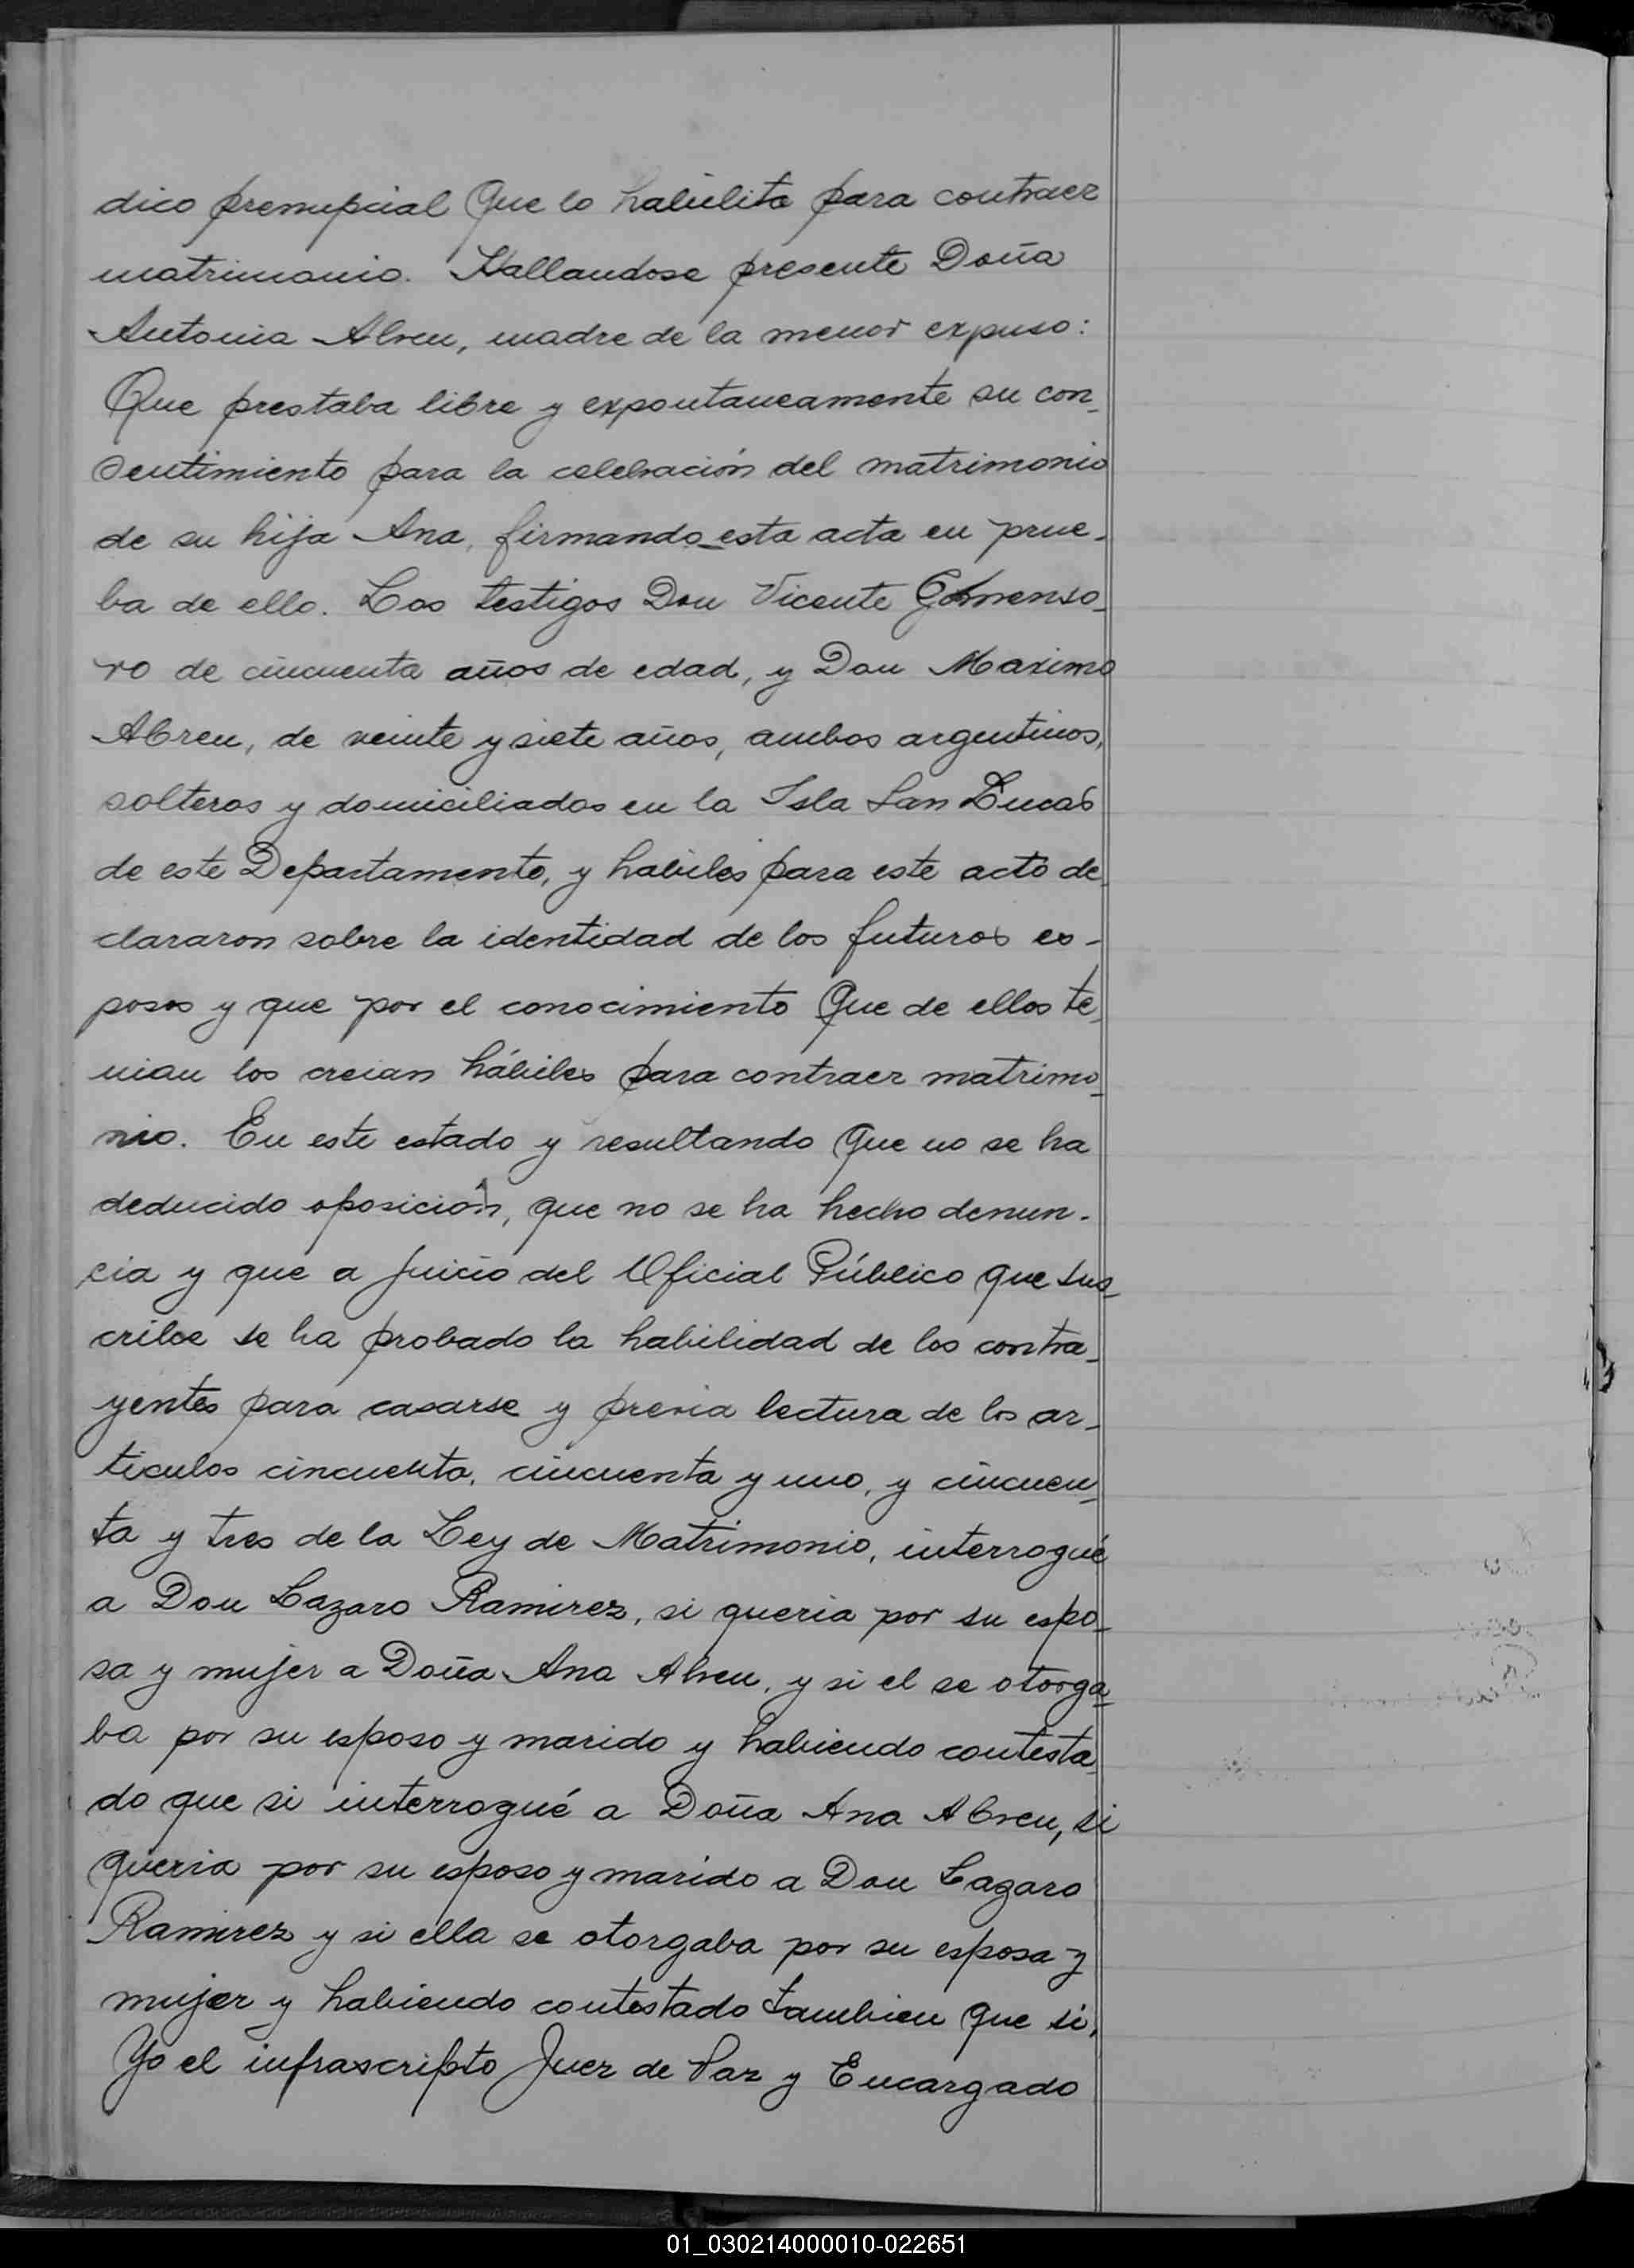 dico prenupcial que lo habilita para contraer
matrimonio. Hallandose presente Doña
Antonia Abreu, madre de la menor expuso:
Que prestaba libre y expontaneamente su con_
sentimiento para la celebración del matrimonio
de su hija Ana, firmando esta acta en prue_
ba de ello. Los testigos Don Vicente Gomenso_
ro de cincuenta años de edad, y Don Maximo
Abreu, de veinte y siete años, ambos argentinos,
solteros y domiciliados en la Isla San Lucas
de este Departamento, y habiles para este acto de_
clararon sobre la identidad de los futuros es_
posos y que por el conocimiento que de ellos te_
nian los creian hábiles para contraer matrimo_
nio. En este estado y resultando que no se ha
deducido oposición, que no se ha hecho denun_
cia y que a juicio del Oficial Público que sus_
cribe se ha probado la habilidad de los contra_
yentes para casarse y previa lectura de los ar_
ticulos cincuenta, cincuenta y uno, y cincuen_
ta y tres de la Ley de Matrimonio, interrogué
a Don Lazaro Ramirez, si queria por su espo_
sa y mujer a Doña Ana Abreu, y si el se otorga_
ba por su esposo y marido y habiendo contesta_
do que si interrogué a Doña Ana Abreu, si
queria por su esposo y marido a Don Lazaro
Ramirez y si ella se otorgaba por su esposa y
mujer y habiendo contestado tambien que si,
Yo el infrascripto Juez de Paz y Encargado
01_030214000010-022651